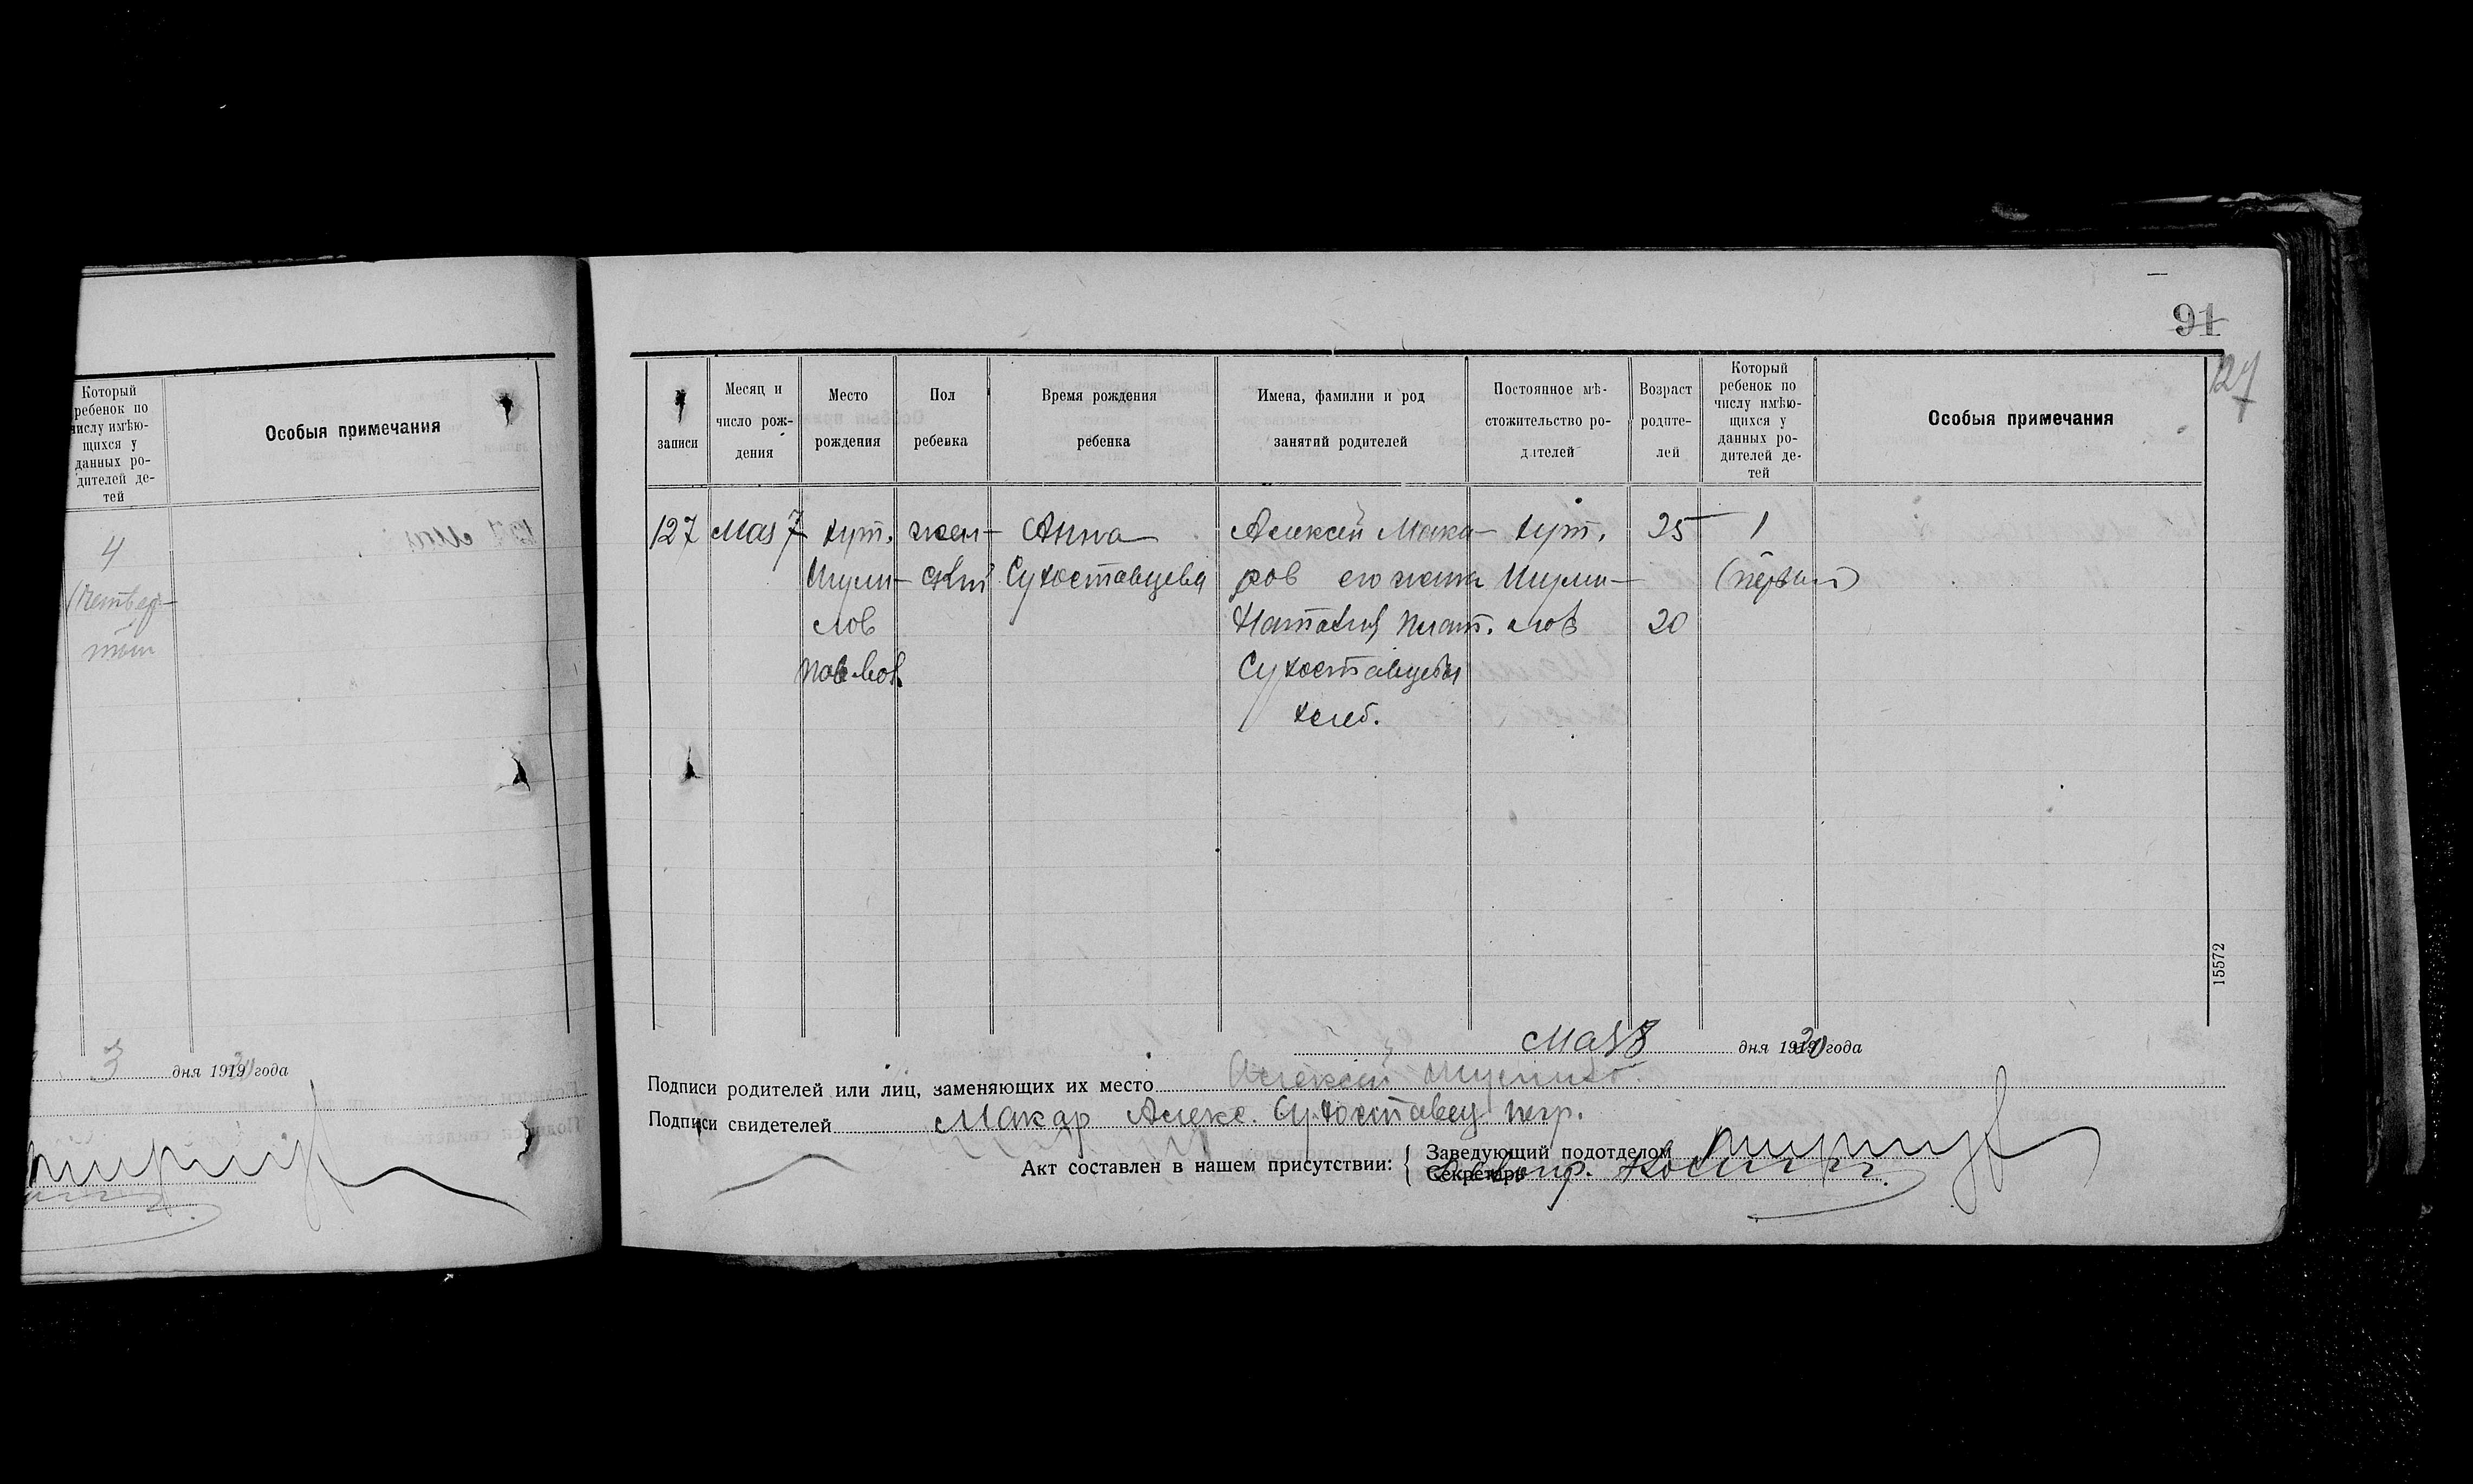 Который
ребенок по
числу имѣю-
щихся у
данных ро-
дителей де-
тей
Особыя примечания
4
(четвер-
тый
3 дня 1919 года
91
127
записи
Месяц и
число рож-
дения
Место
рождения
Пол
ребенка
Время рождения
ребенка
Имена, фамилии и род
занятий родителей
Постоянное мѣ-
стожительство ро-
дителей
Возраст
родите-
лей
Который
ребенок по
числу имѣю-
щихся у
данных ро-
дителей де-
тей
Особыя примечания
127 Мая 7 хут. жен- Анна Алексей Мака- хут. 25 1
Шуми- ский Сухоставцева ров его жена Шуми- (первый)
лов Наталия Плат. лов 20
Сухоставцевы
хлеб.
15572
Мая 8 дня 1920 года
Подписи родителей или лиц, заменяющих их место Алексей
Подписи свидетелей Макар Алекс. Сухоставец негр.
Акт составлен в нашем присутствии:
Заведующий подотделом
Секретарь